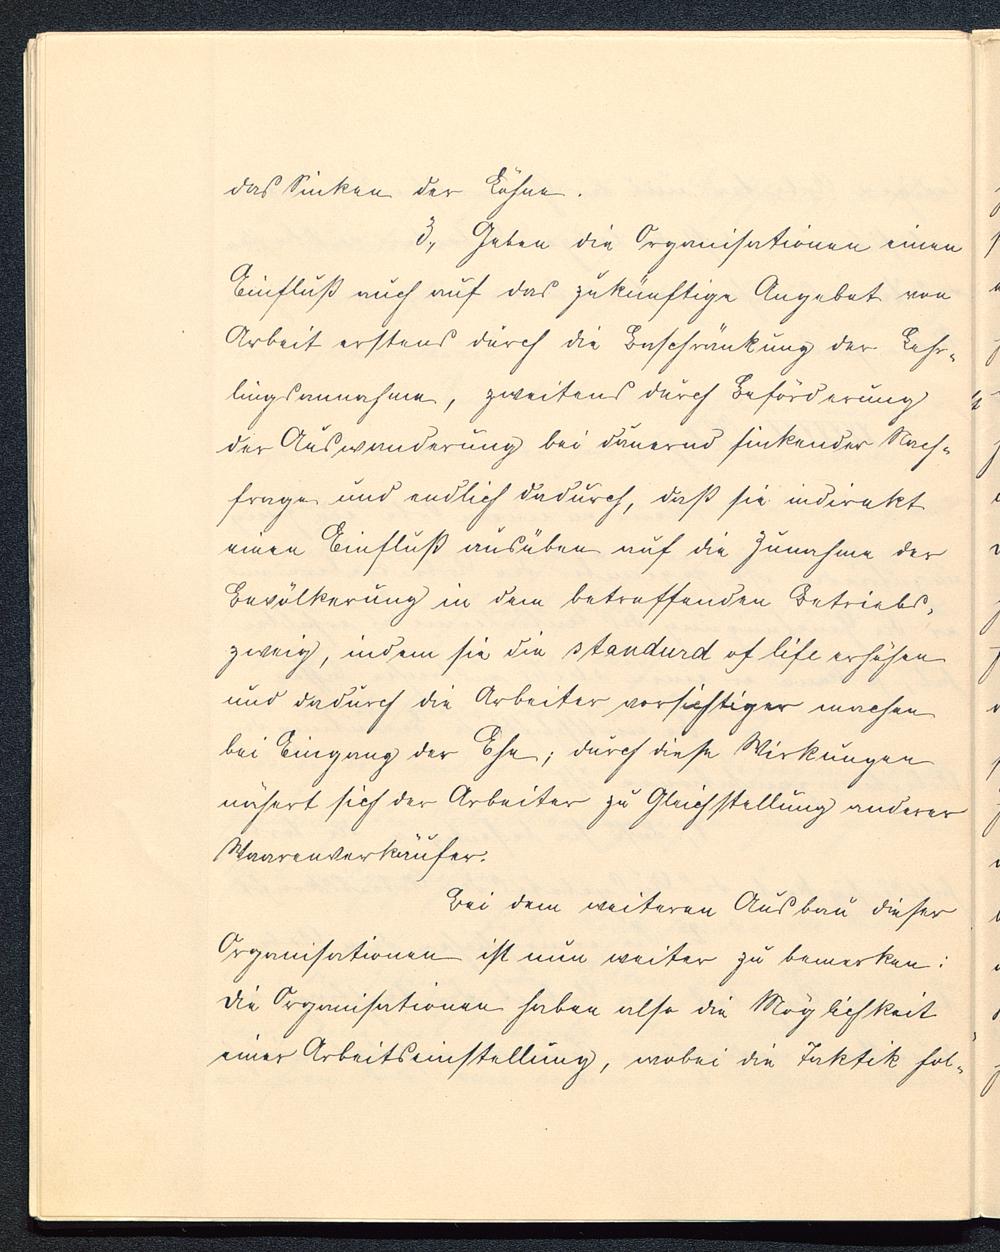 das Sinken der Löhne.
3, Geben die Organisationen einen
Einfluß auch auf das zukünftige Angebot von
Arbeit erstens durch die Beschränkung der Lehr-
lingsannahme, zweitens durch Beförderung
der Auswanderung bei dauernd sinkender Nach-
frage und endlich dadurch, daß sie indirekt
einen Einfluß ausüben auf die Zunahme der
Bevölkerung in dem betreffenden Betriebs-
zweig, indem sie die standard of life erhöhen
und dadurch die Arbeiter vorsichtiger machen
bei Eingang der Ehe; durch diese Wirkungen
nähert sich der Arbeiter zu Gleichstellung anderer
Waarenverkäufer.
Bei dem weiteren Ausbau dieser
Organisationen ist nun weiter zu bemerken:
die Organisationen haben also die Möglichkeit
einer Arbeitseinstellung, wobei die Taktik fol-